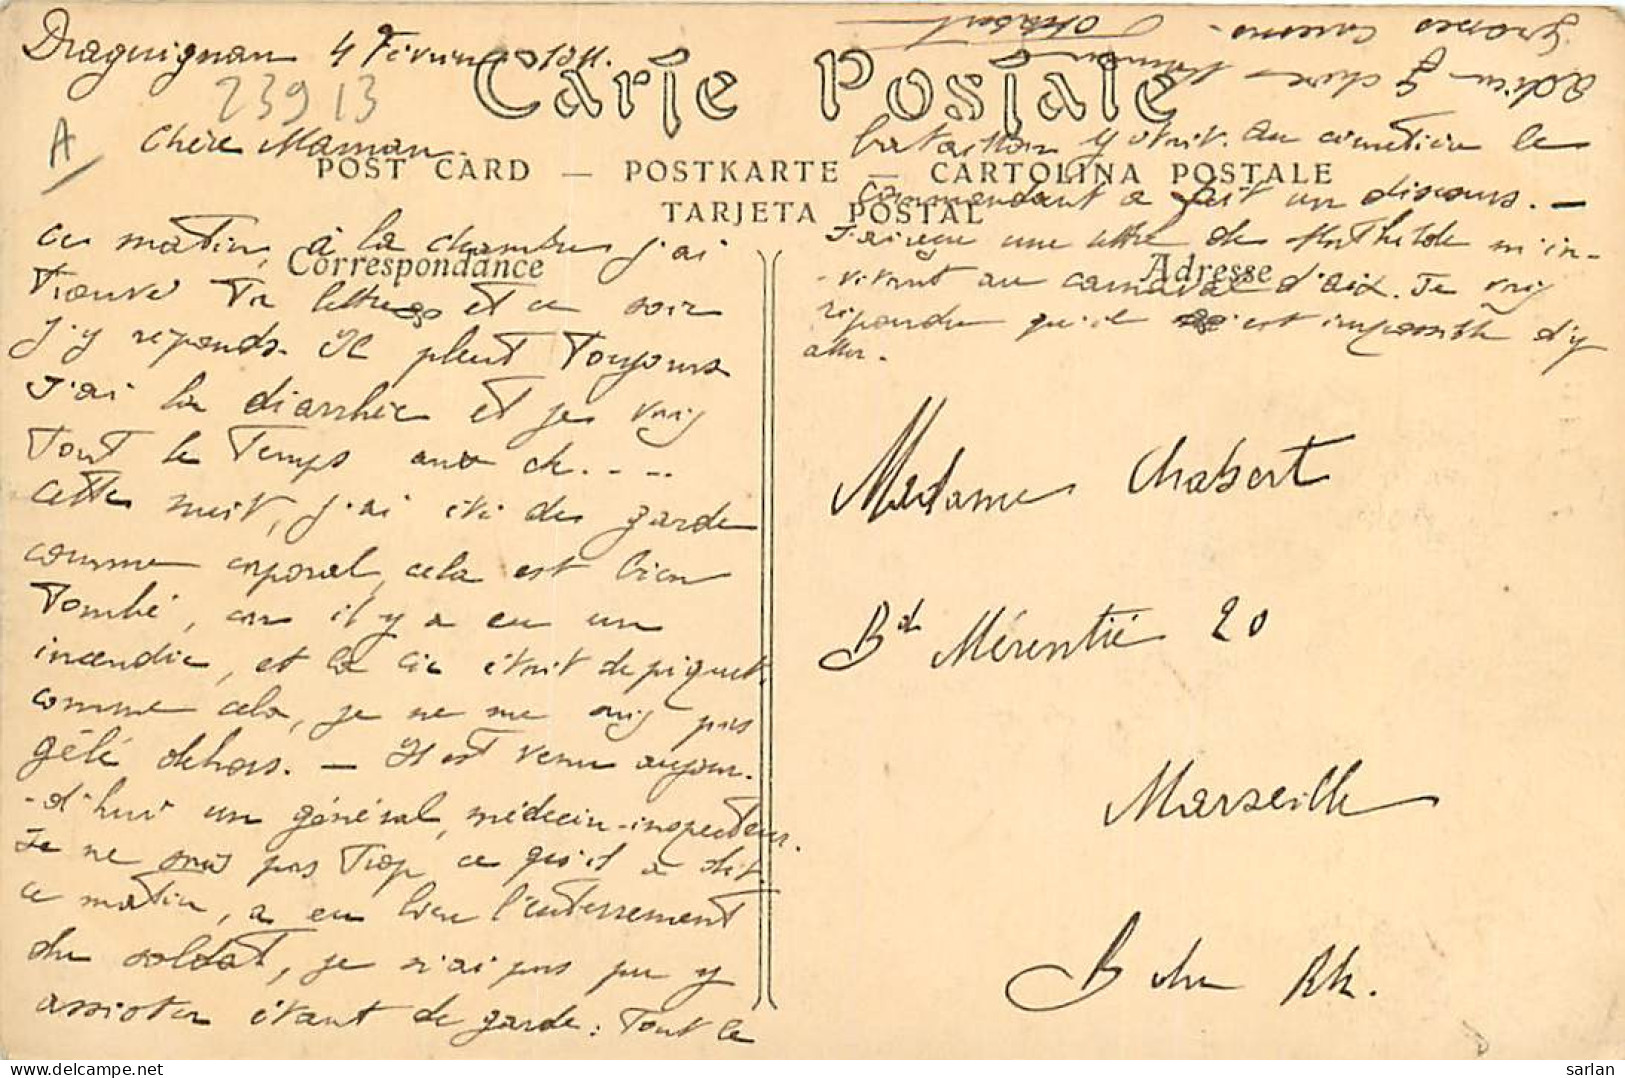 Draguignan 4 Février 1911.
23913
A
Carte Postale
Chère Maman.
POST CARD — POSTKARTE — CARTOLINA POSTALE
TARJETA POSTAL
Correspondance
Adresse
ce matin, à la chambre j'ai
trouvé ta lettre et ce soir
j'y réponds. Il pleut toujours
J'ai la diarrhée et je vais
tout le temps aux ch....
cette nuit, j'ai été de garde
comme caporal, cela est bien
tombé, car il y a eu un
incendie, et la Cie était de piquet.
comme cela, je ne me suis pas
gélé dehors. — Il est venu aujour-
-d'hui un général, médecin-inspecteur.
Je ne sais pas trop ce qu'il a dit.
ce matin, a eu lieu l'enterrement
du soldat, je n'ai pas pu y
assister étant de garde : Tout le
bataillon y était. au cimetière le
commandant a fait un discours. —
J'ai reçu une lettre de Mathilde m'in-
-vitant au carnaval d'aix. Je vais
répondre qu'il m'est impossible d'y
aller.
adieu chère maman
grosses caresses -
Chabert
Madame Chabert
Bd Mérentié 20
Marseille
B du Rh.
sarlan